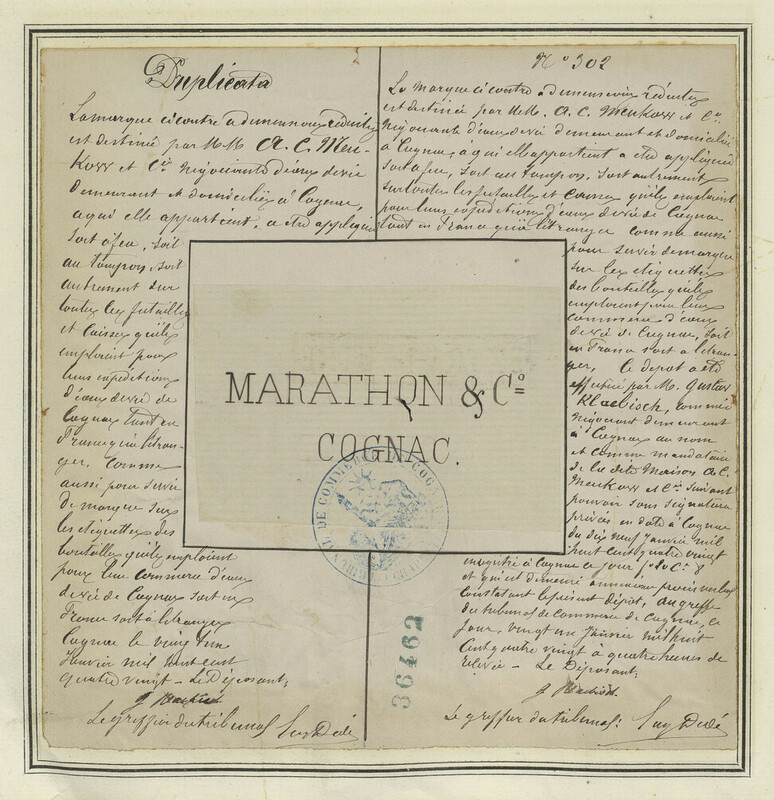 Duplicata
La marque ci contre a dimensions réduites
est destinée par MM A. C. Meu-
kow et Cie Négociants d'eaux de vie
demeurant et domiciliés à Cognac,
a qui elle appartient, a être appliquée
soit à feu, soit
au tampon, soit
autrement sur
toutes les futailles
et caisses qu'ils
emploient pour
leurs expéditions
d'eaux de vie de
Cognac tant en
France qu'à l'étran-
ger, comme
aussi pour servir
de marque sur
les étiquettes des
bouteilles qu'ils emploient
pour leur commerce d'eaux
de vie de Cognac soit en
France soit à l'étranger
Cognac le vingt un
Janvier mil huit cent
quatre vingt - Le Déposant;
Le greffier du tribunal Guy Dedé
No 302
La marque ci contre a dimensions réduites
est destinée par MM. A. C. Meukow et Cie
Négociants d'eaux de vie demeurant et domiciliés
à Cognac, à qui elle appartient a être appliquée
soit à feu, soit au tampon, soit autrement
sur toutes les futailles et caisses qu'ils emploient
pour leurs expéditions d'eaux de vie de Cognac
tant en France qu'à l'étranger comme aussi
pour servir de marque
sur les étiquettes
des bouteilles qu'ils
emploient pour leur
commerce d'eaux
de vie de Cognac, soit
en France soit à l'étran-
ger, le dépôt a été
effectué par M. Gustav
Klaebisch, commis
négociant demeurant
à Cognac au nom
et comme mandataire
de la dite Maison A. C.
Meukow et Cie suivant
pouvoir sous signature
privée en date à Cognac
du dix neuf janvier mil
huit cent quatre vingt
enregistré à Cognac ce jour
et qui est demeuré annexé au procès verbal
constatant le présent dépôt, au greffe
du tribunal de commerce de Cognac, ce
jour, vingt un Janvier mil huit
cent quatre vingt à quatre heures de
relevée - Le Déposant;
Le greffier du tribunal: Guy Dedé
MARATHON & Co
COGNAC.
TRIBUNAL DE COMMERCE DE COGNAC
36462